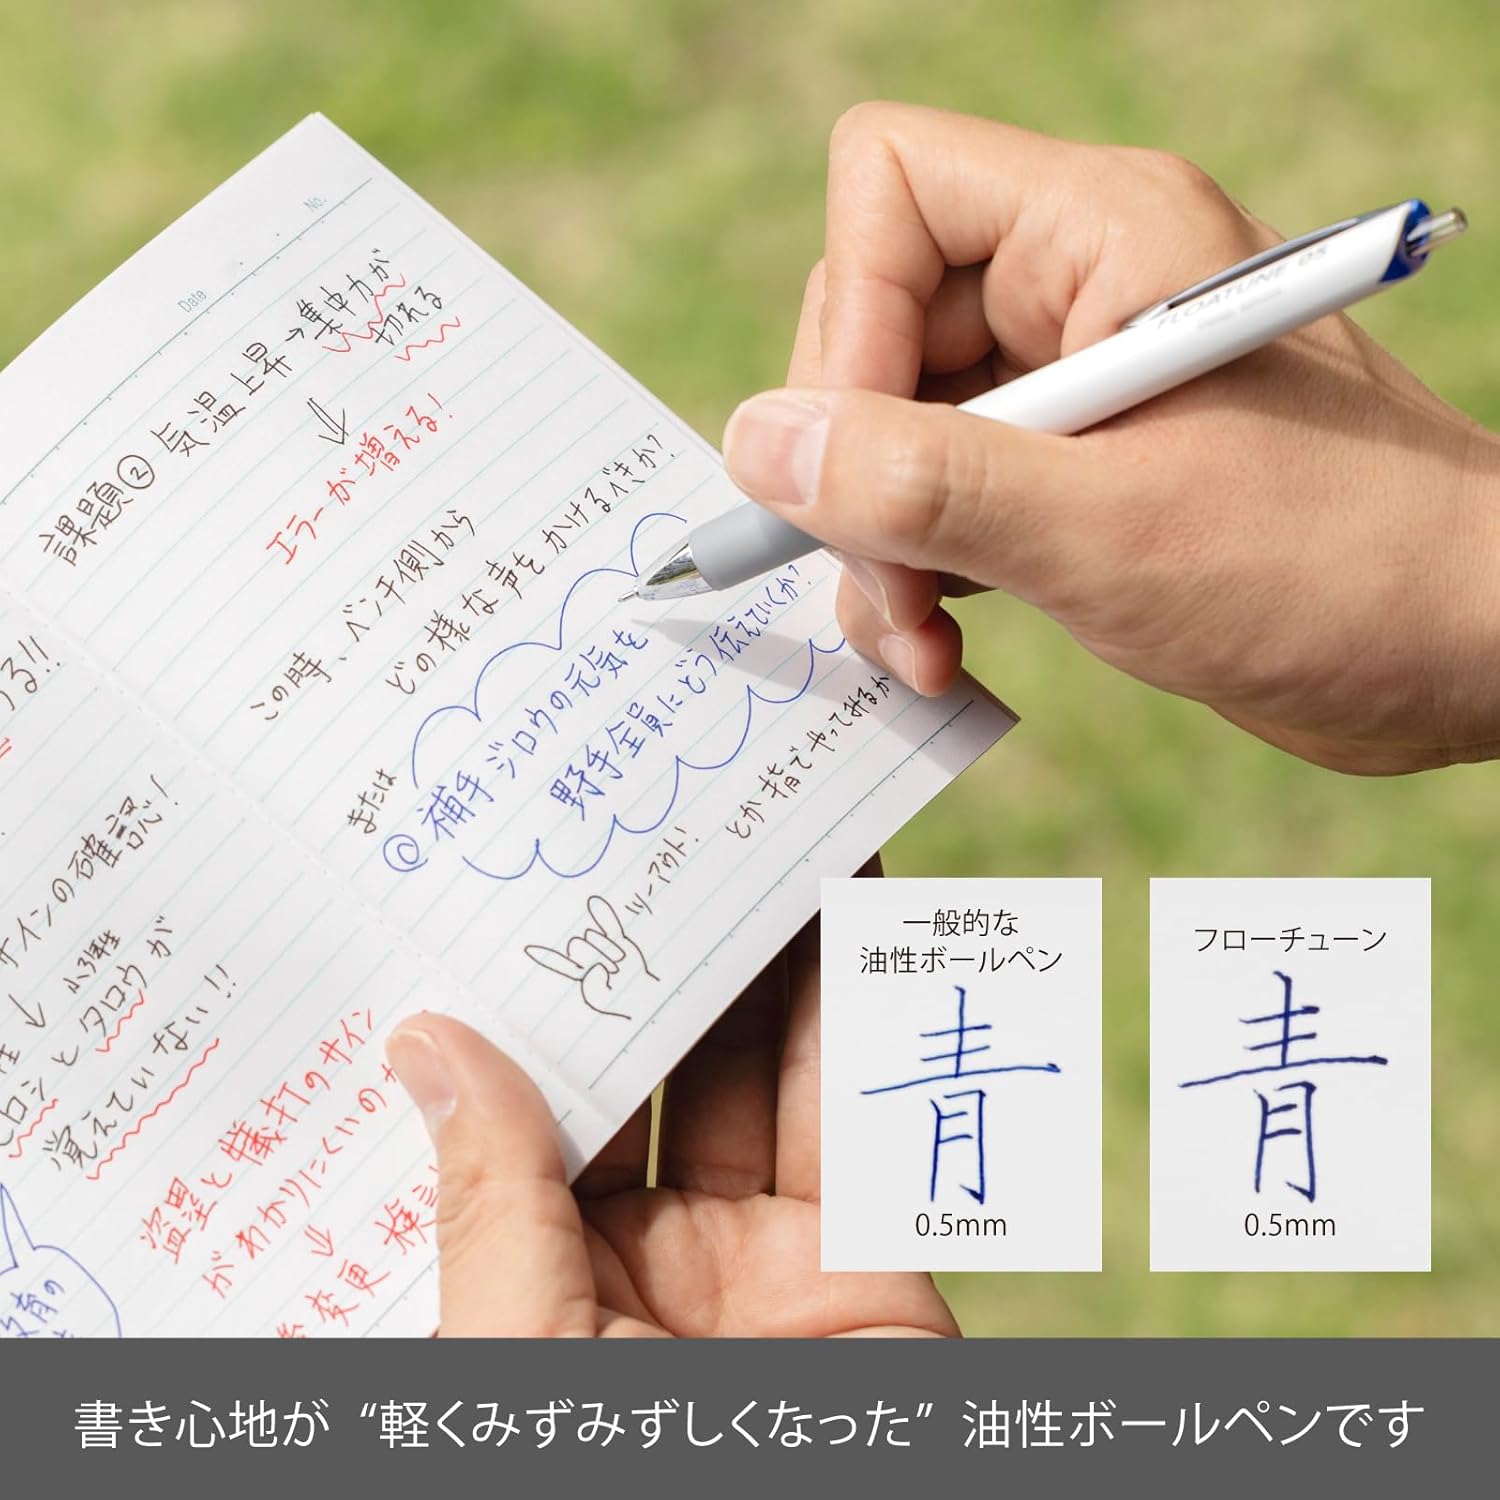 No.
Date
課題② 気温上昇→集中力が
切れる
⇓
エラーが増える!
この時、ベンチ側から
どの様な声をかけるべきか?
または
@補手ジロウの元気を
野手全員にどう伝えていくか?
ツーアウト!
とか指でやってみるか
る!!
サインの確認!
↓
と タロウが
覚えていない!!
盗塁と犠打のサイン
がわかりにくいのが
⇓
変更 検討
FLOATUNE 05
一般的な
油性ボールペン
青
0.5mm
フローチューン
青
0.5mm
書き心地が“軽くみずみずしくなった”油性ボールペンです